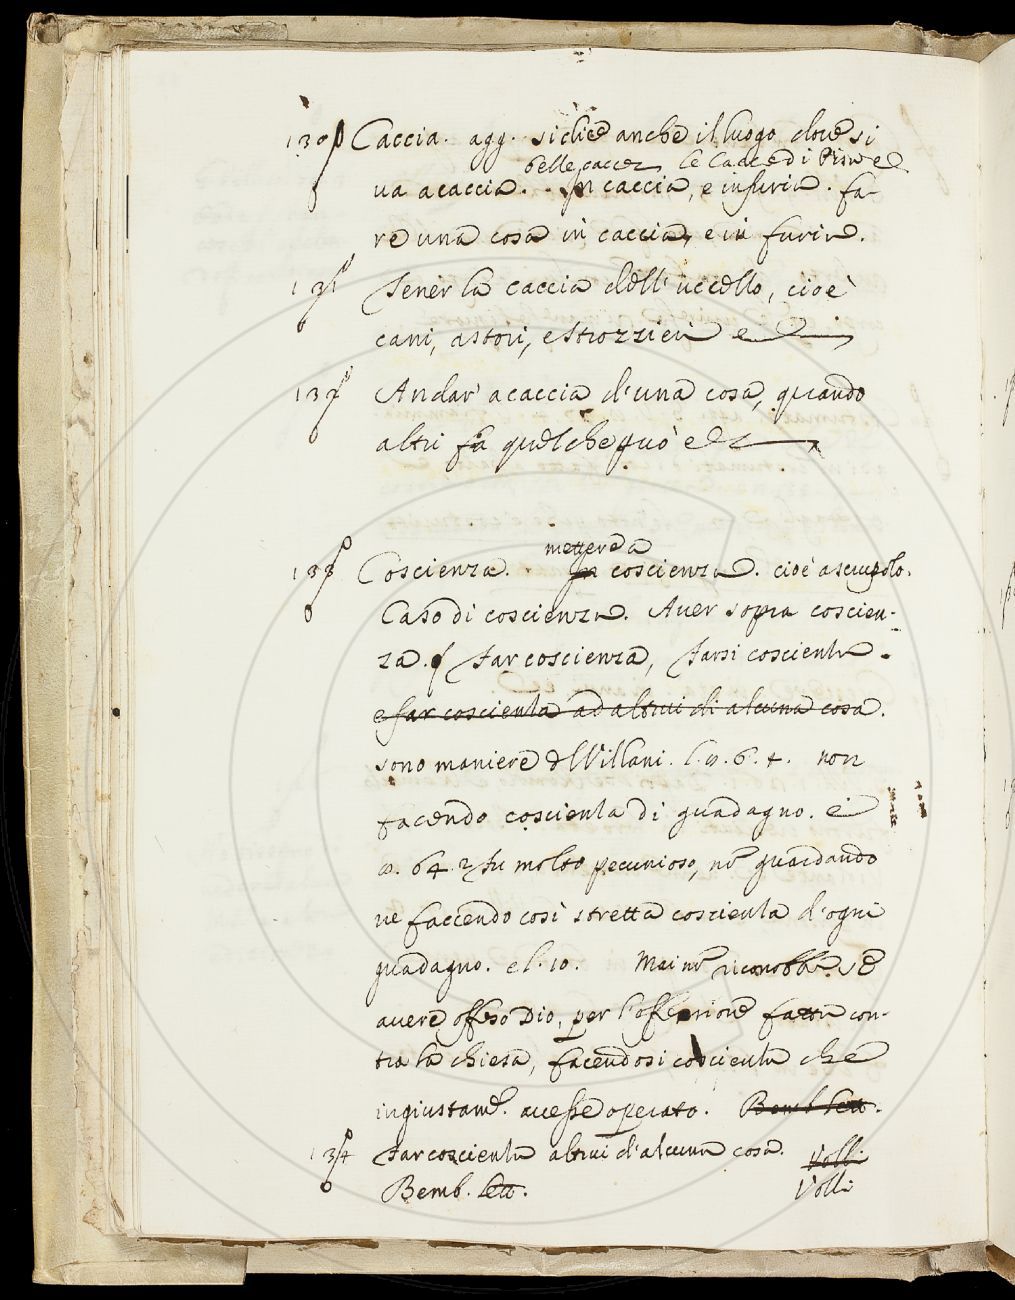 130 Caccia. agg. si dice anche il luogo dove si
belle cacce le Cacce di Pisa e
va a caccia. In caccia, e in furia. fa-
re una cosa in caccia, e in furia.
131 Tener la caccia dell' uccello, cioè
cani, astori, e strozzieri e
132 Andar' a caccia d'una cosa, quando
altri fa quel che può e
mettere a
133 Coscienza. In coscienza. cioè a scrupolo.
Caso di coscienza. Aver sopra coscien-
za. Far coscienza, Farsi coscientia.
e far coscientia ad altrui di alcuna cosa.
sono maniere d Villani. l. 9. 6. 4. non
facendo coscientia di guadagno. e
64. 2 fu molto pecunioso, guardando
ne faccendo così stretta coscientia d'ogni
guadagno. e l. 10. Mai riconobbe se
avere offeso Dio, per l'offensione fatta con-
tra la chiesa, facendosi coscientia che
ingiustam. avesse operato. Bemb. lett.
134 Far coscientia altrui d'alcuna cosa. Volli
Bemb. lett. Volli